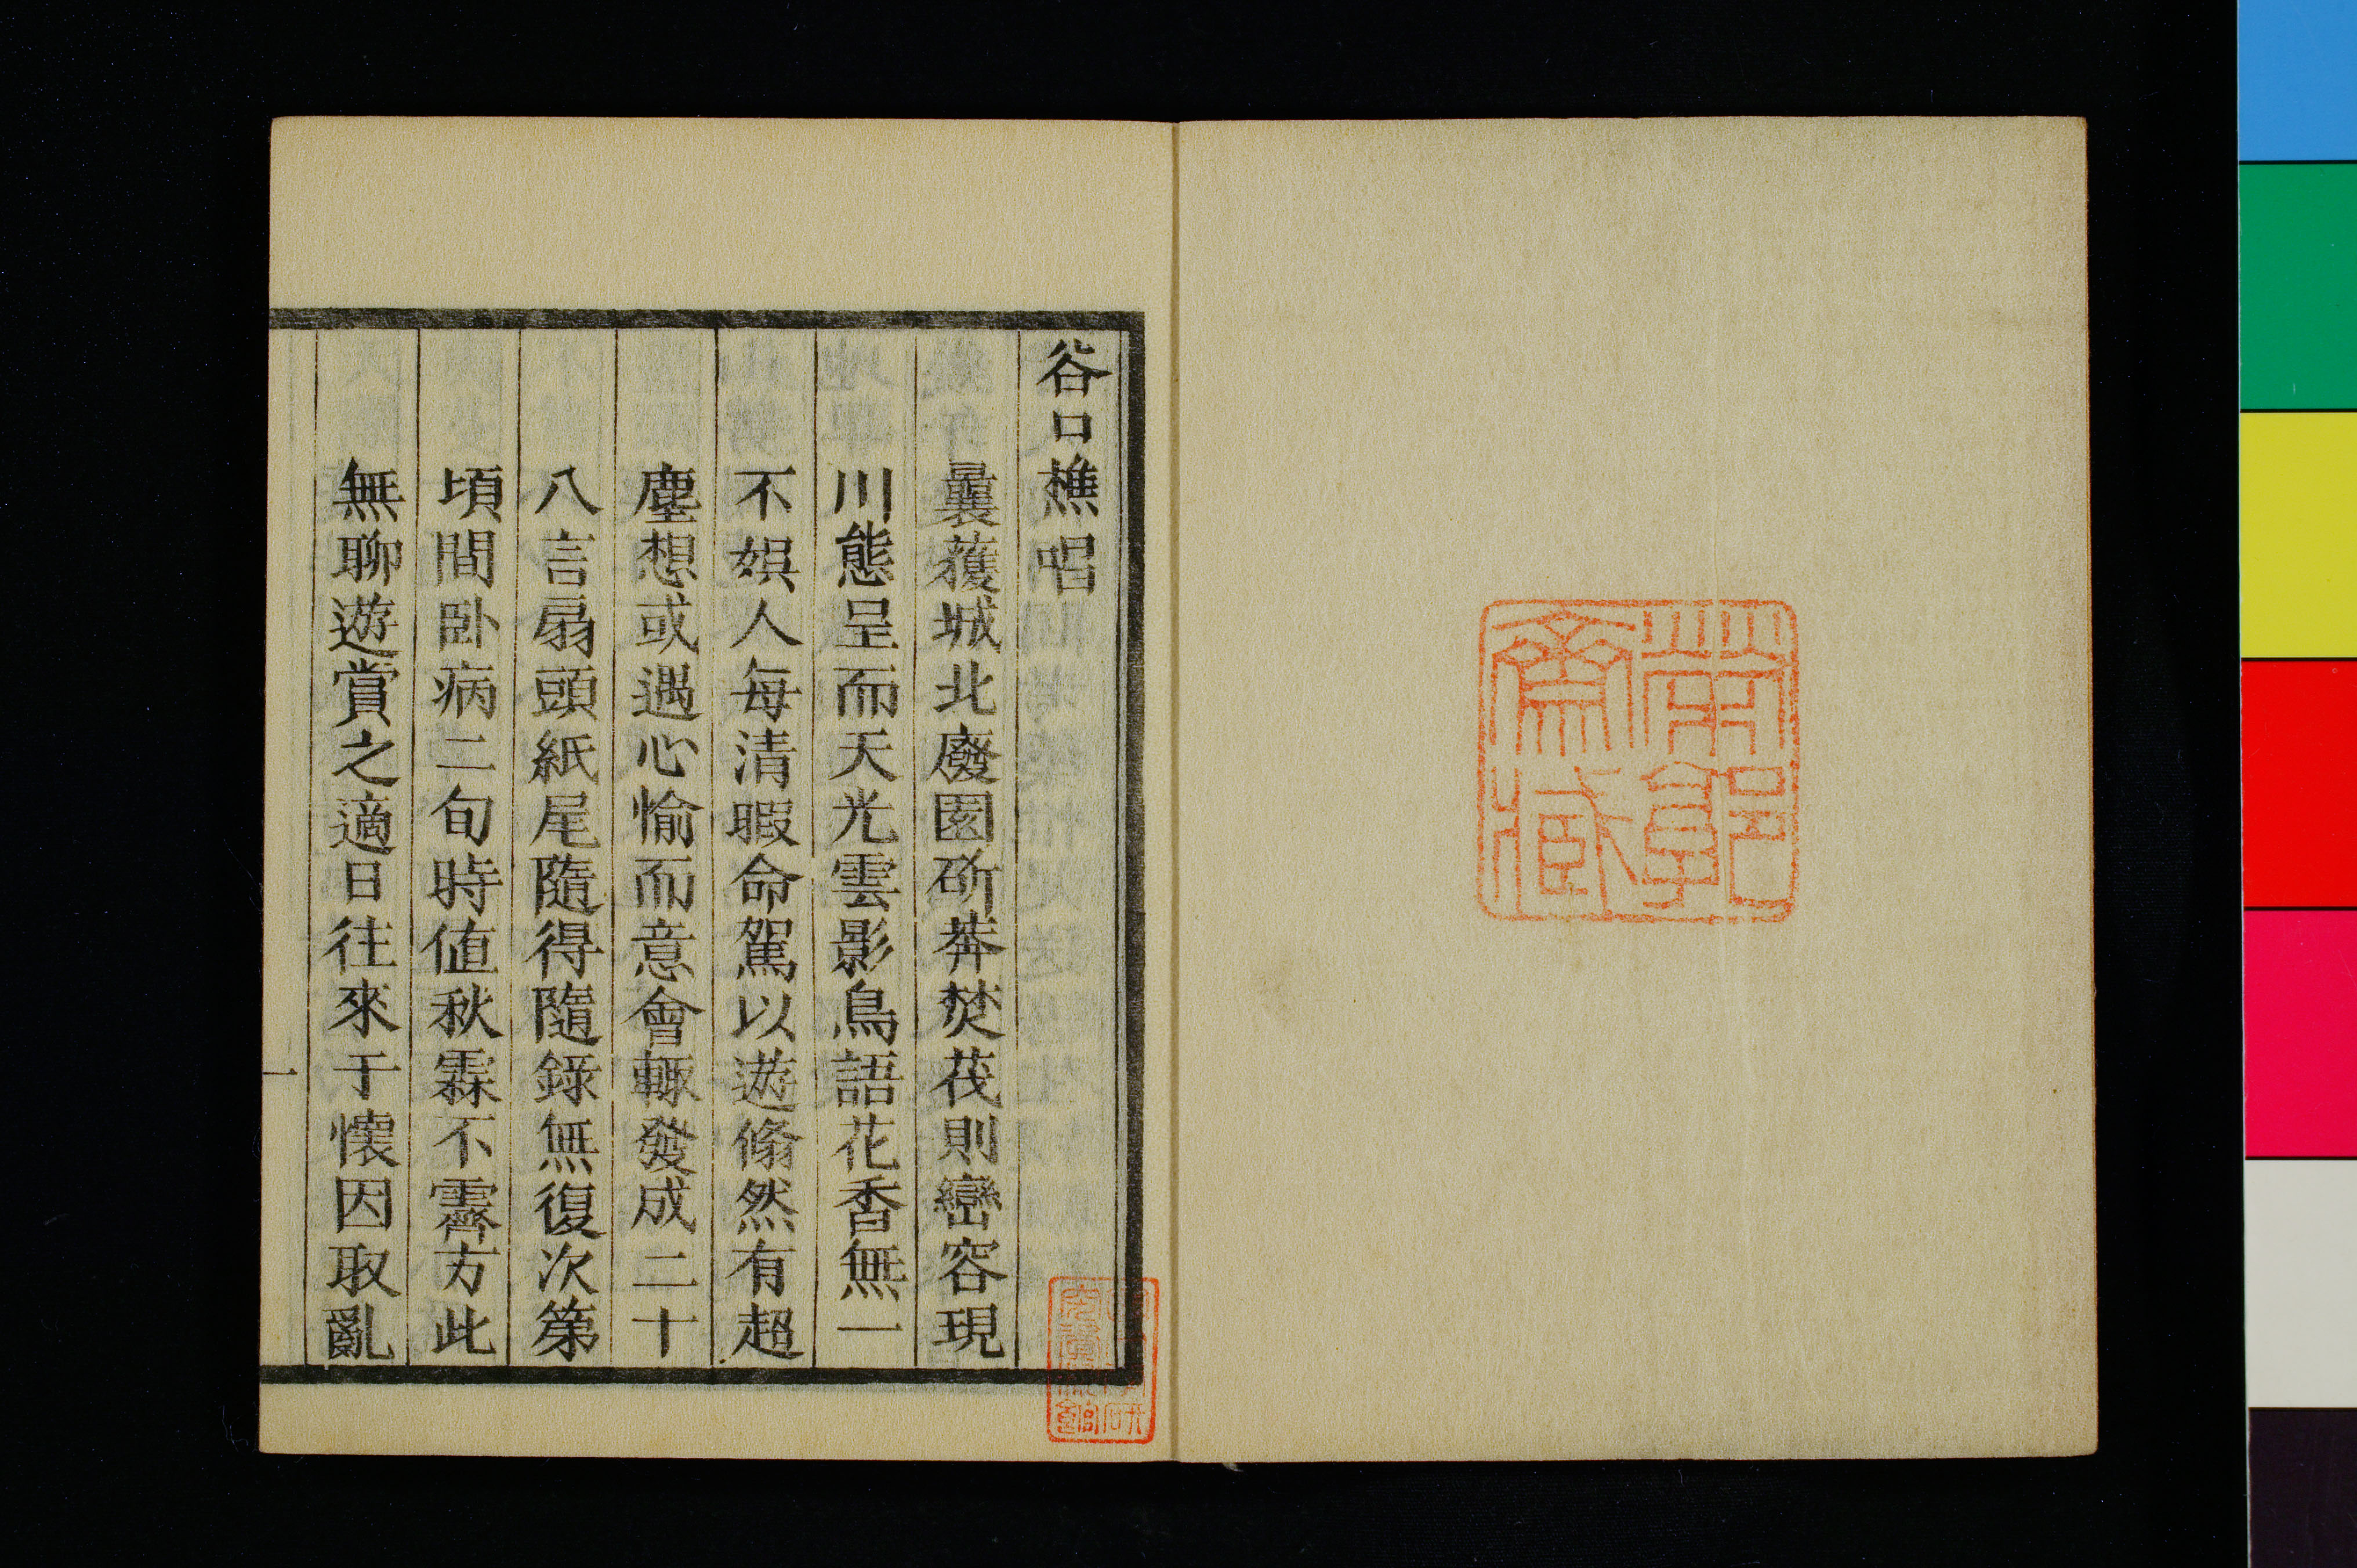 帶郭
齋藏
谷口樵唱
曩獲城北廢園斫莽焚茂則巒容現
川態呈而天光雲影鳥語花香無一
不娯人每清暇命駕以遊翛然有超
塵想或遇心愉而意會輙發成二十
八言扇頭紙尾隨得隨錄無復次第
頃間卧病二旬時值秋霖不霽方此
無聊遊賞之適日往來于懷因取亂
一